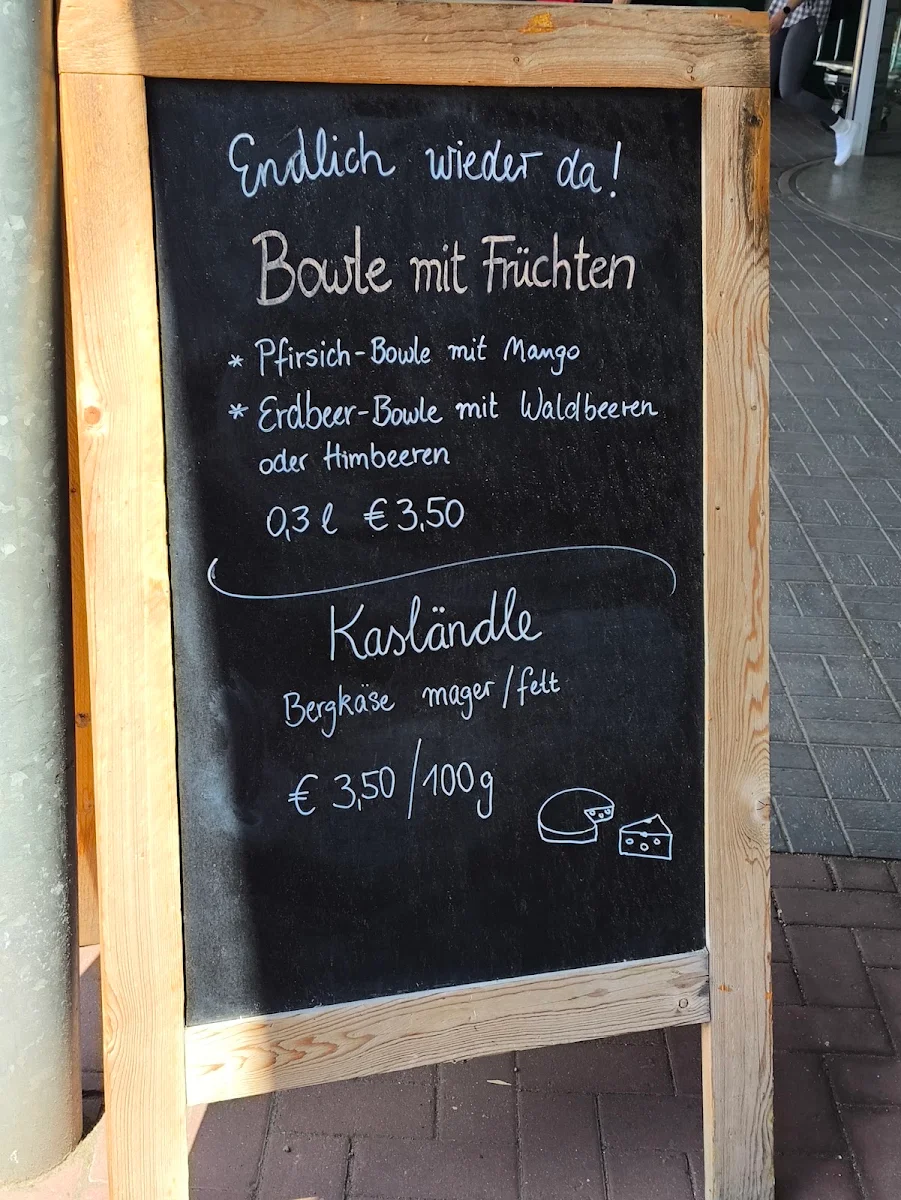 Endlich wieder da!
Bowle mit Früchten
* Pfirsich-Bowle mit Mango
* Erdbeer-Bowle mit Waldbeeren
oder Himbeeren
0,3 l € 3,50
Kasländle
Bergkäse mager/fett
€ 3,50/100g